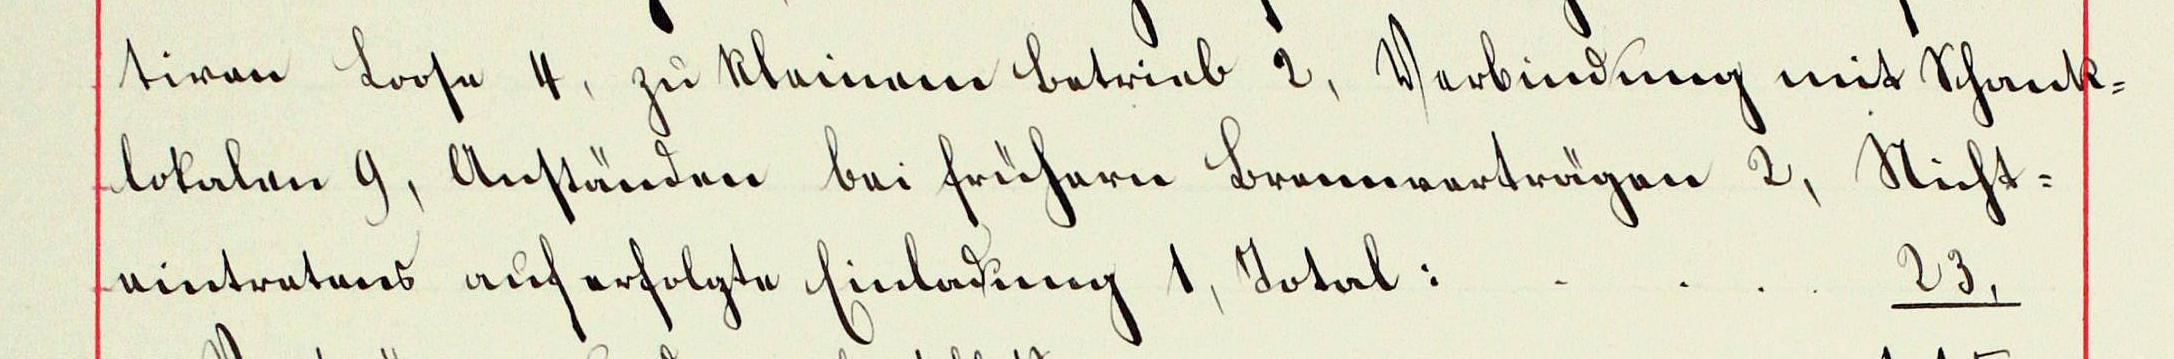 tiven Loose 4, zu kleinem Betrieb 2, Verbindung mit Schank=
lokalen 9, Anständen bei frühern Brennverträgen 2, Nicht=
eintretens auf erfolgte Einladung 1, Total: . . . . 23,